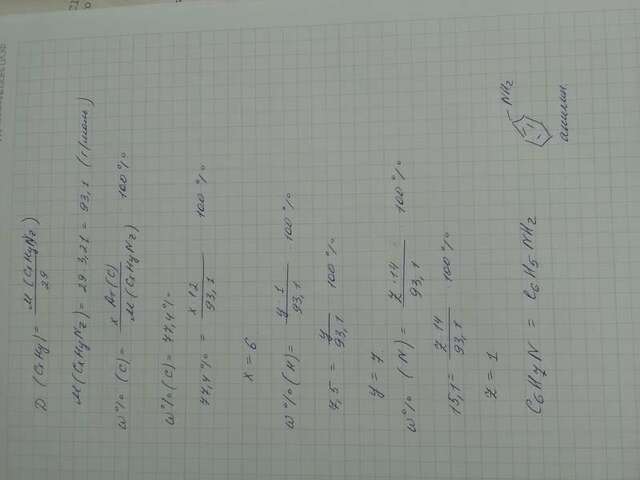 D (CxHy) = M (CxHyNz) / 29
M(CxHyNz) = 29·3,21 = 93,1 (г/моль)
ω% (C) = x Ar(C) / M(CxHyNz) 100%
ω% (C) = 77,4%
77,4% = x 12 / 93,1 100%
x = 6
ω% (H) = y 1 / 93,1 100%
7,5 = y / 93,1 100%
y = 7
ω% (N) = z 14 / 93,1 100%
15,1 = z 14 / 93,1 100%
z = 1
C6H7N = C6H5NH2
NH2
анилин